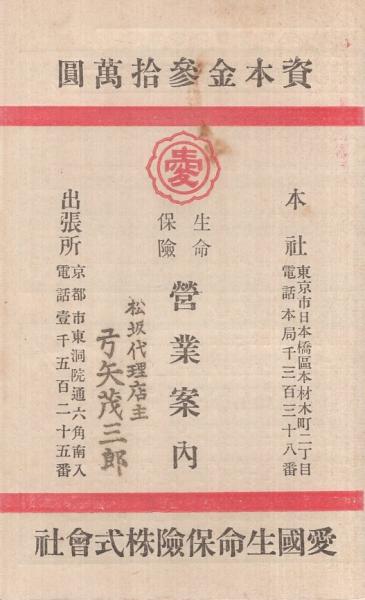 資本金參拾萬圓
愛
本社
東京市日本橋區本材木町二丁目
電話本局千三百三十八番
生命
保險
營業案内
松坂代理店主
弓矢茂三郎
出張所
京都市東洞院通六角南入
電話壹千五百二十五番
愛國生命保險株式會社